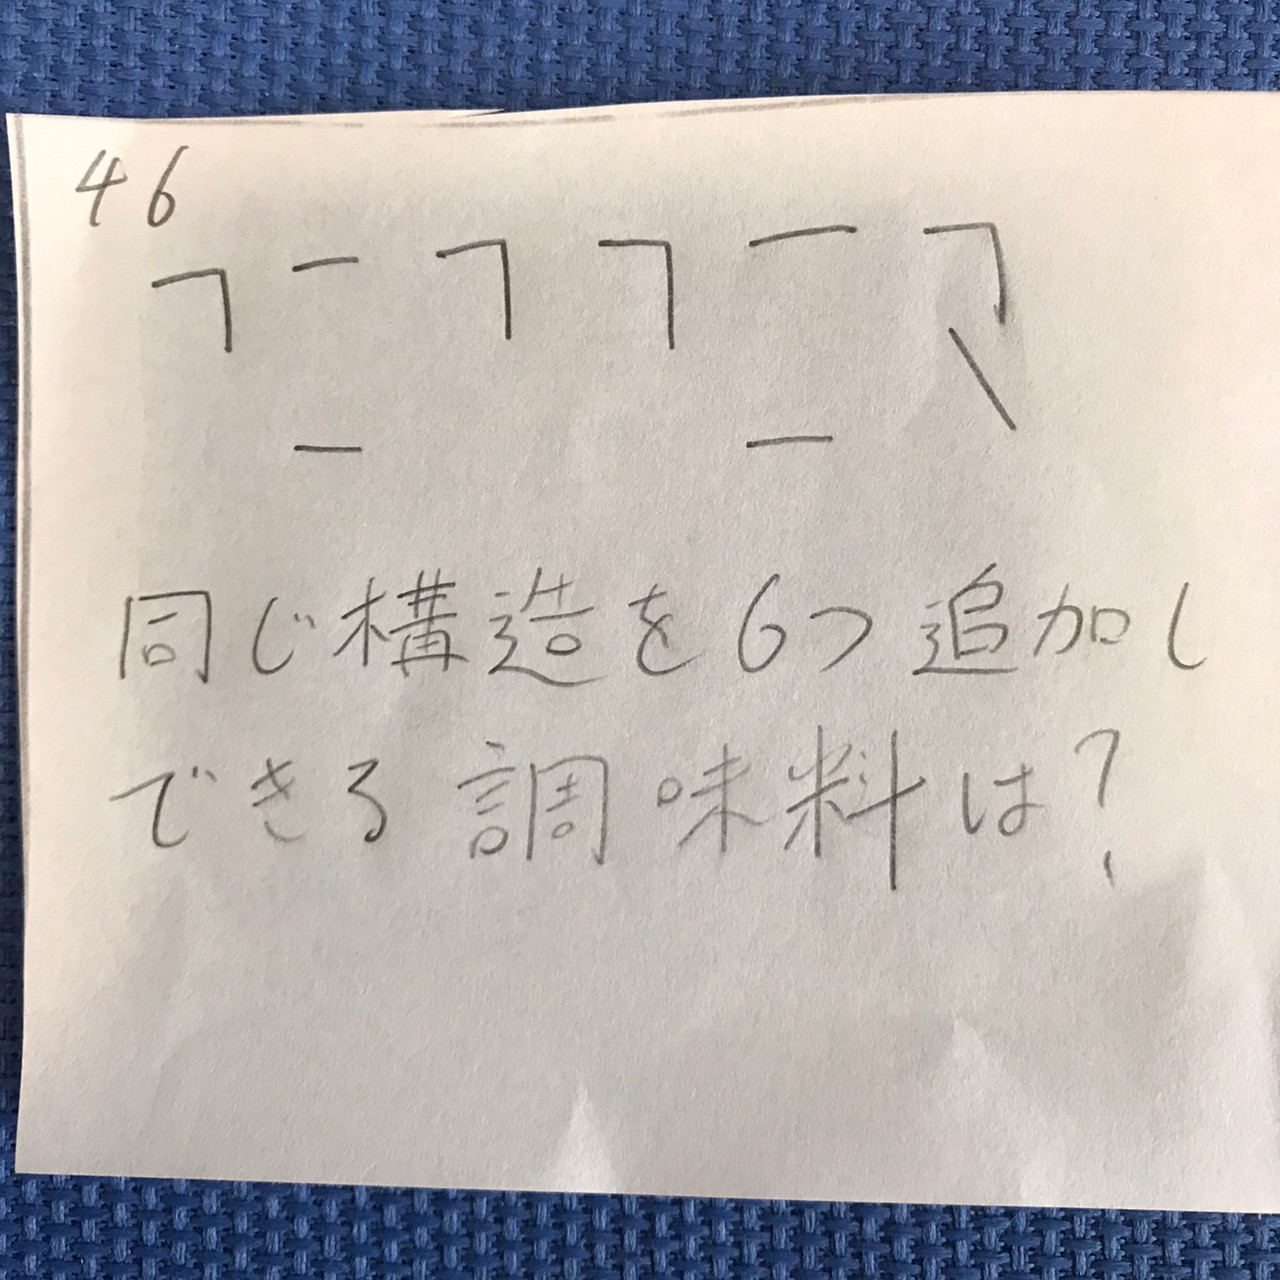 46
同じ構造を6つ追加し
できる調味料は?